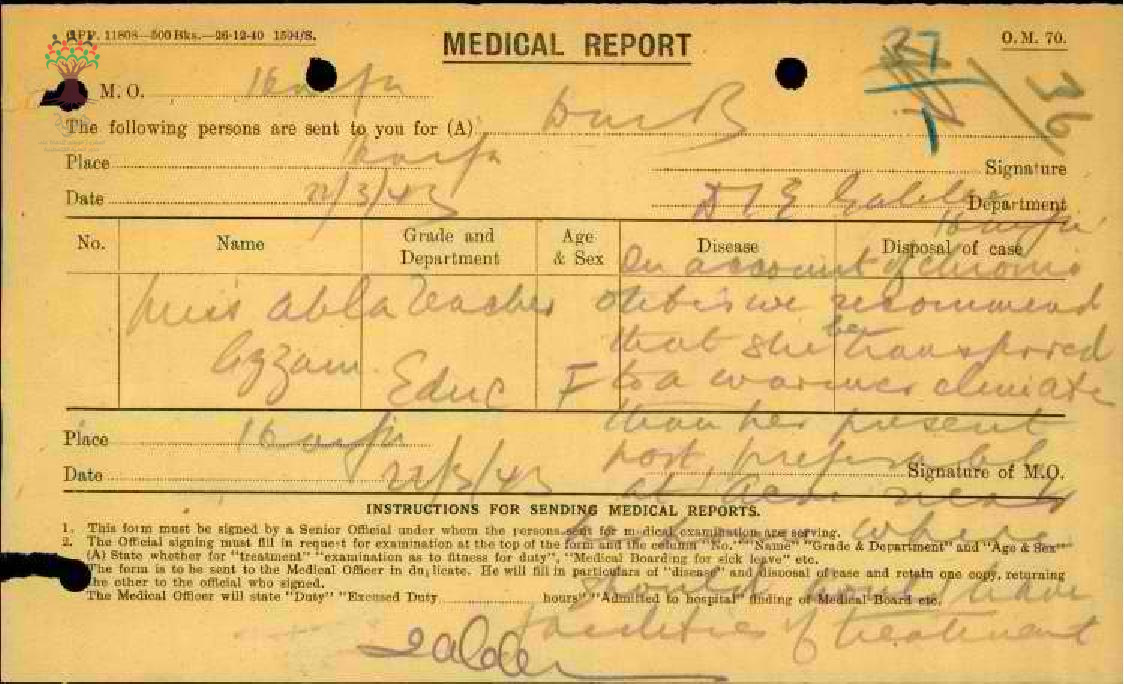 GPP. 11808—500 Bks.—26-12-40 1504/S.
O.M. 70.
MEDICAL REPORT
37
1
36
M. O. Haifa
The following persons are sent to you for (A)
Place Haifa
Signature
Date 22/3/43
Department
D I E Galilee
Haifa
No. Name Grade and Department Age & Sex Disease Disposal of case
Miss Abla Azzam
Teacher
Educ
F
On account of chronic
otitis we recommend
that she be transferred
to a warmer climate
than her present
post, preferabl
at Acre
where
could have
facilities of treatment
Place Haifa
Date 22/3/43
Signature of M.O.
INSTRUCTIONS FOR SENDING MEDICAL REPORTS.
1. This form must be signed by a Senior Official under whom the persons sent for medical examination are serving.
2. The Official signing must fill in request for examination at the top of the form and the column "No." "Name" "Grade & Department" and "Age & Sex"
(A) State whether for "treatment" "examination as to fitness for duty", "Medical Boarding for sick leave" etc.
The form is to be sent to the Medical Officer in duplicate. He will fill in particulars of "disease" and disposal of case and retain one copy, returning
the other to the official who signed.
The Medical Officer will state "Duty" "Excused Duty hours" "Admitted to hospital" finding of Medical Board etc.